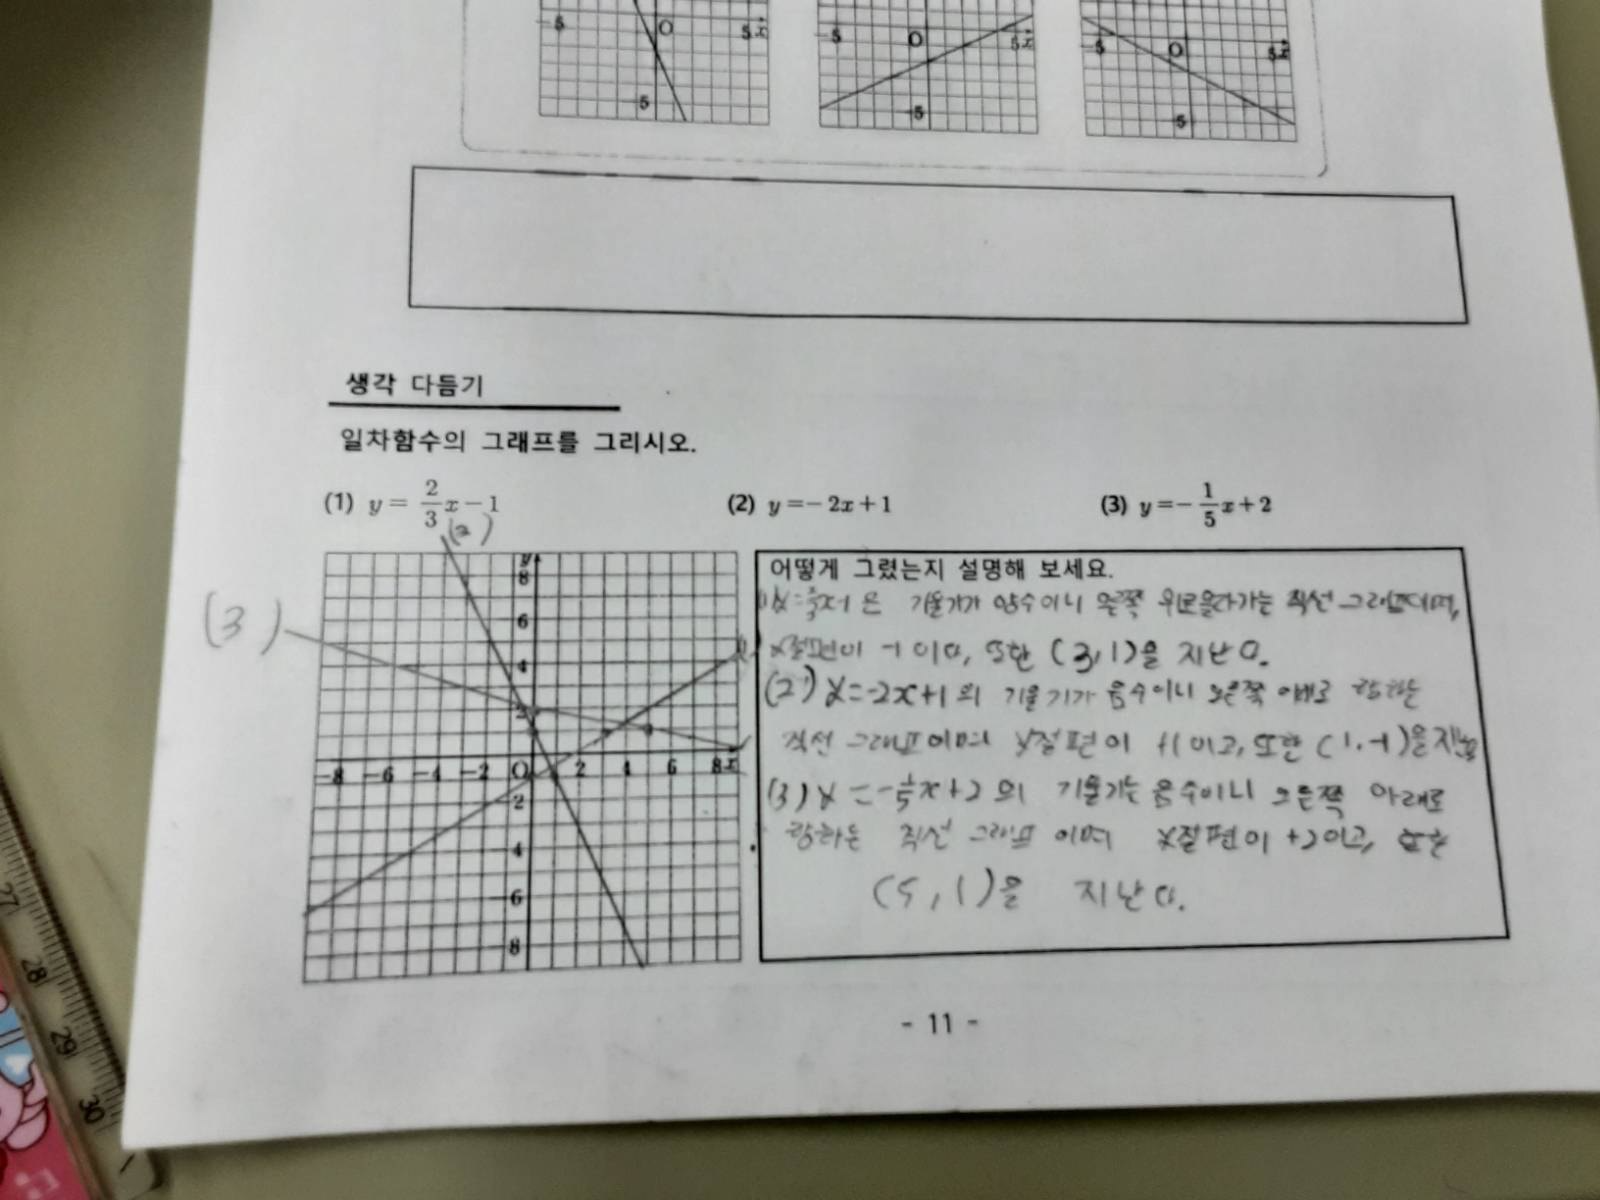 -5 O 5 x -5 O 5 x -5 O 5 x
-5 -5 -5
생각 다듬기
일차함수의 그래프를 그리시오.
(1) y = 2/3 x - 1 (2) y = - 2x + 1 (3) y = - 1/5 x + 2
(2)
(3)
y
8
6
4
2
-8 -6 -4 -2 O 2 4 6 8 x
-2
-4
-6
-8
어떻게 그렸는지 설명해 보세요.
은 기울기가 양수이니 오른쪽 위로 올라가는 직선 그래프이며,
y절편이 -1 이다, 또한 (3,1)을 지난다.
(2) y=-2x+1의 기울기가 음수이니 오른쪽 아래로 향하는
직선 그래프이며 y절편이 +1이고, 또한 (1,-1)을
(3) y=-1/5x+2의 기울기는 음수이니 오른쪽 아래로
향하는 직선 그래프 이며 y절편이 +2이고, 또한
(5,1)을 지난다.
- 11 -
27
28
29
30